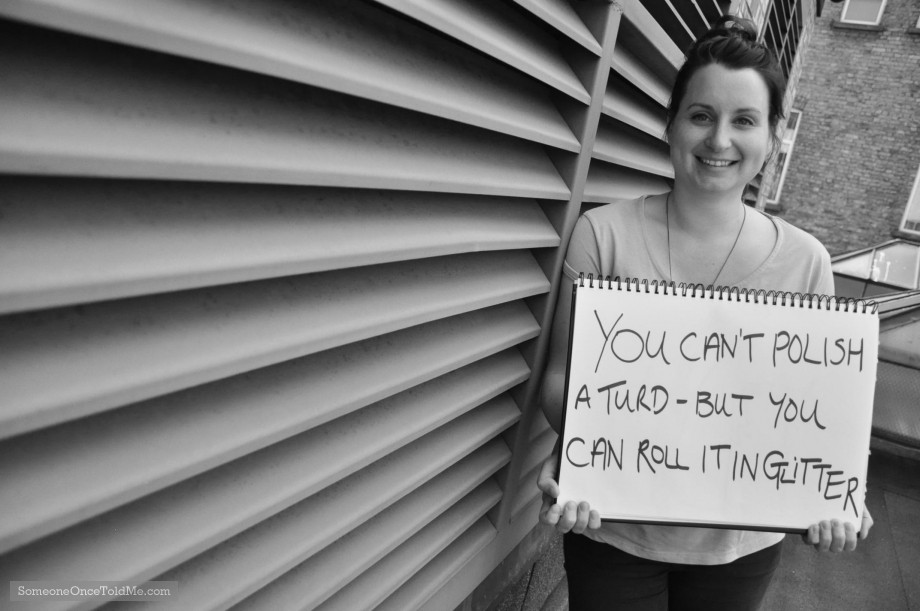 YOU CAN'T POLISH
A TURD - BUT YOU
CAN ROLL IT IN GLITTER
SomeoneOnceToldMe.com